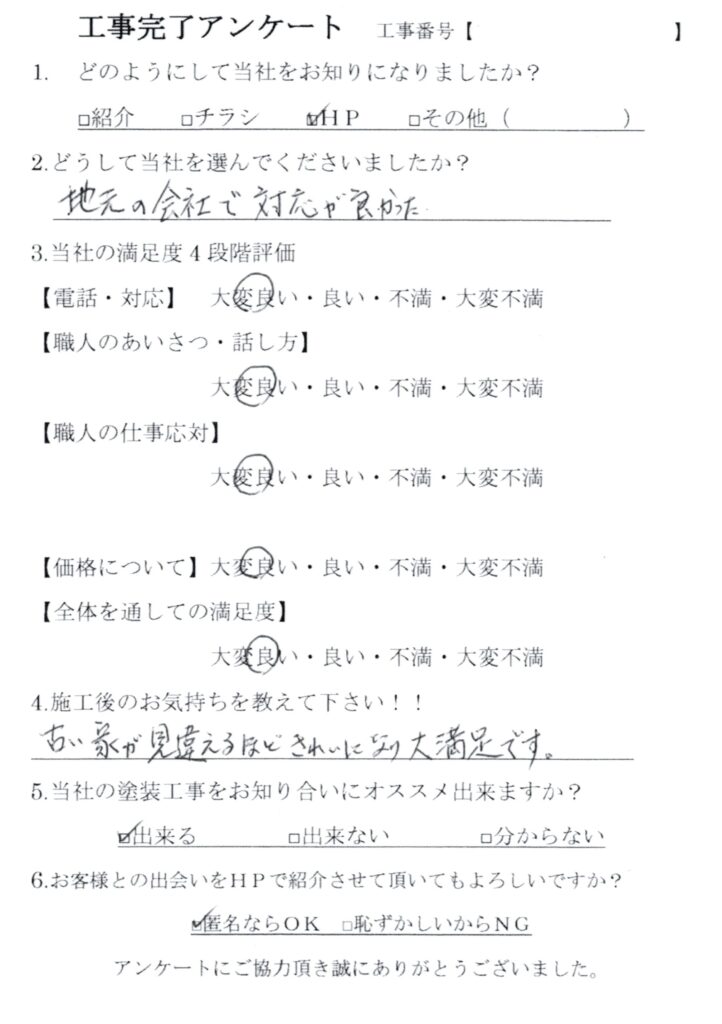 工事完了アンケート 工事番号【 】
1. どのようにして当社をお知りになりましたか？
□紹介 □チラシ ☑HP □その他（ ）
2.どうして当社を選んでくださいましたか？
地元の会社で対応が良かった
3.当社の満足度4段階評価
【電話・対応】 大変良い・良い・不満・大変不満
【職人のあいさつ・話し方】
大変良い・良い・不満・大変不満
【職人の仕事応対】
大変良い・良い・不満・大変不満
【価格について】大変良い・良い・不満・大変不満
【全体を通しての満足度】
大変良い・良い・不満・大変不満
4.施工後のお気持ちを教えて下さい！！
古い家が見違えるほどきれいになり大満足です。
5.当社の塗装工事をお知り合いにオススメ出来ますか？
☑出来る □出来ない □分からない
6.お客様との出会いをHPで紹介させて頂いてもよろしいですか？
☑匿名ならOK □恥ずかしいからNG
アンケートにご協力頂き誠にありがとうございました。